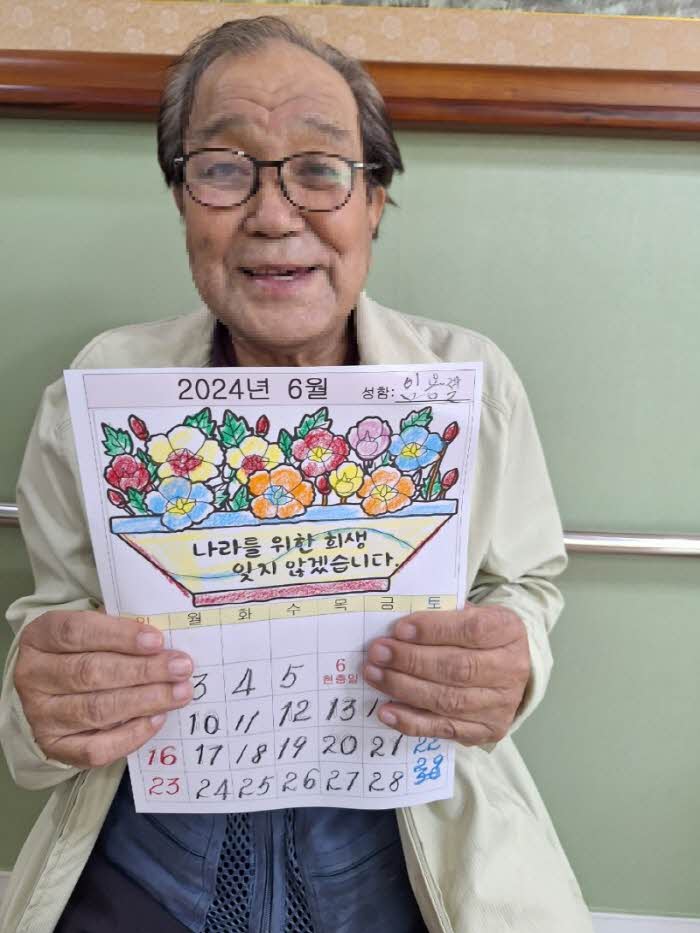 2024년 6월
성함:
나라를 위한 희생
잊지 않겠습니다.
일 월 화 수 목 금 토
6
3 4 5 현충일
10 11 12 13
16 17 18 19 20 21 22
29
23 24 25 26 27 28 30